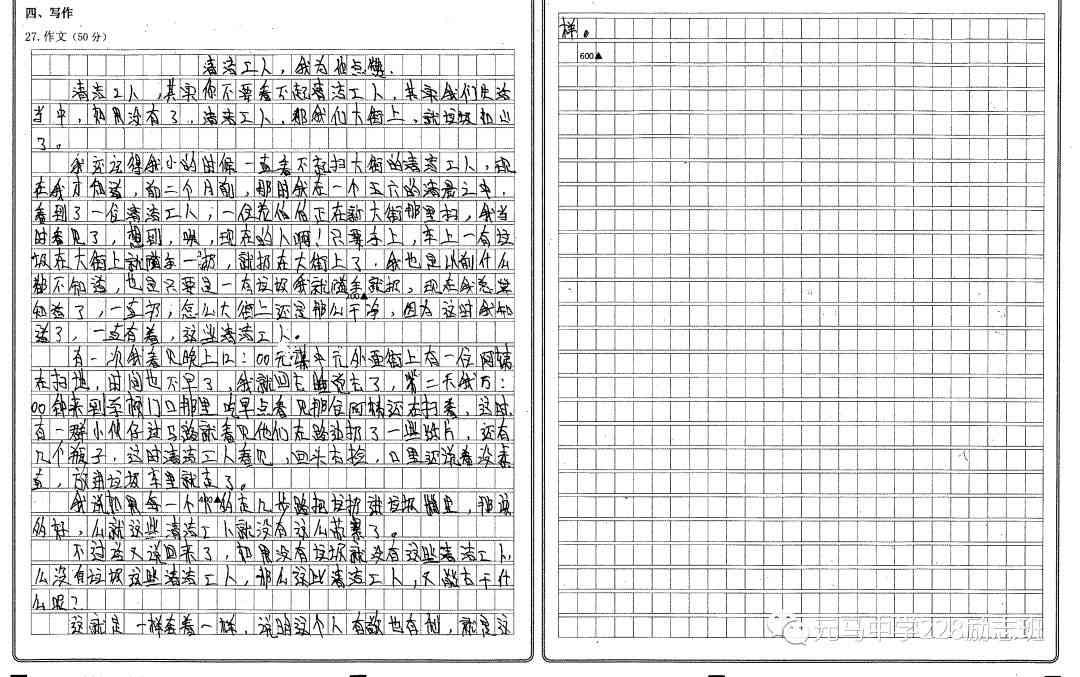 四、写作
27.作文（50分）
清洁工人，我为他点赞.
清洁工人，其实你不要看不起清洁工人，其实我们生活
当中，如果没有了，清洁工人，那我们大街上，就垃圾如山
了。
我还记得我小的时候一直看不起扫大街的清洁工人，现
在我才知道，前二个月前，那时我在一个五六的清晨之中，
看到了一位清洁工人；一位爷爷正在新大街那里扫，我当
时看见了，想到，唉，现在的人啊！只要手上，车上一有垃
圾在大街上就随手一扔，就扔在大街上了．我也是以前什么
都不知道，也是只要是一有垃圾我就随手就扔，现在我总算
200▲
知道了，一直扔；怎么大街上还是那么干净，因为这时我知
道了，一直有着，这些清洁工人。
有一次我看见晚上12：00元谋中元外面街上有一位阿姨
在扫地，时间也不早了，我就回去睡觉去了，第二天我7：
00钟来到学校门口那里吃早点看见那位阿姨还在扫着，这时
有一群小伙仔过马路就看见他们在路边扔了一些纸片，还有
几个瓶子，这时清洁工人看见，回头去捡，口里还说着没素
直，放到垃圾车里就走了。
400▲
我说如果每一个 的走几步路把垃圾扔进垃圾桶里，那该
多好，么就这些清洁工人就没有这么苦累了。
不过话又说回来了，如果没有垃圾就没有这些清洁工人，
么没有垃圾这些清洁工人，那么这些清洁工人，又能去干什
么呢？
这就是一样 着一样，说明这个人有 也有利，就是这
样。
600▲
元马中学228励志班